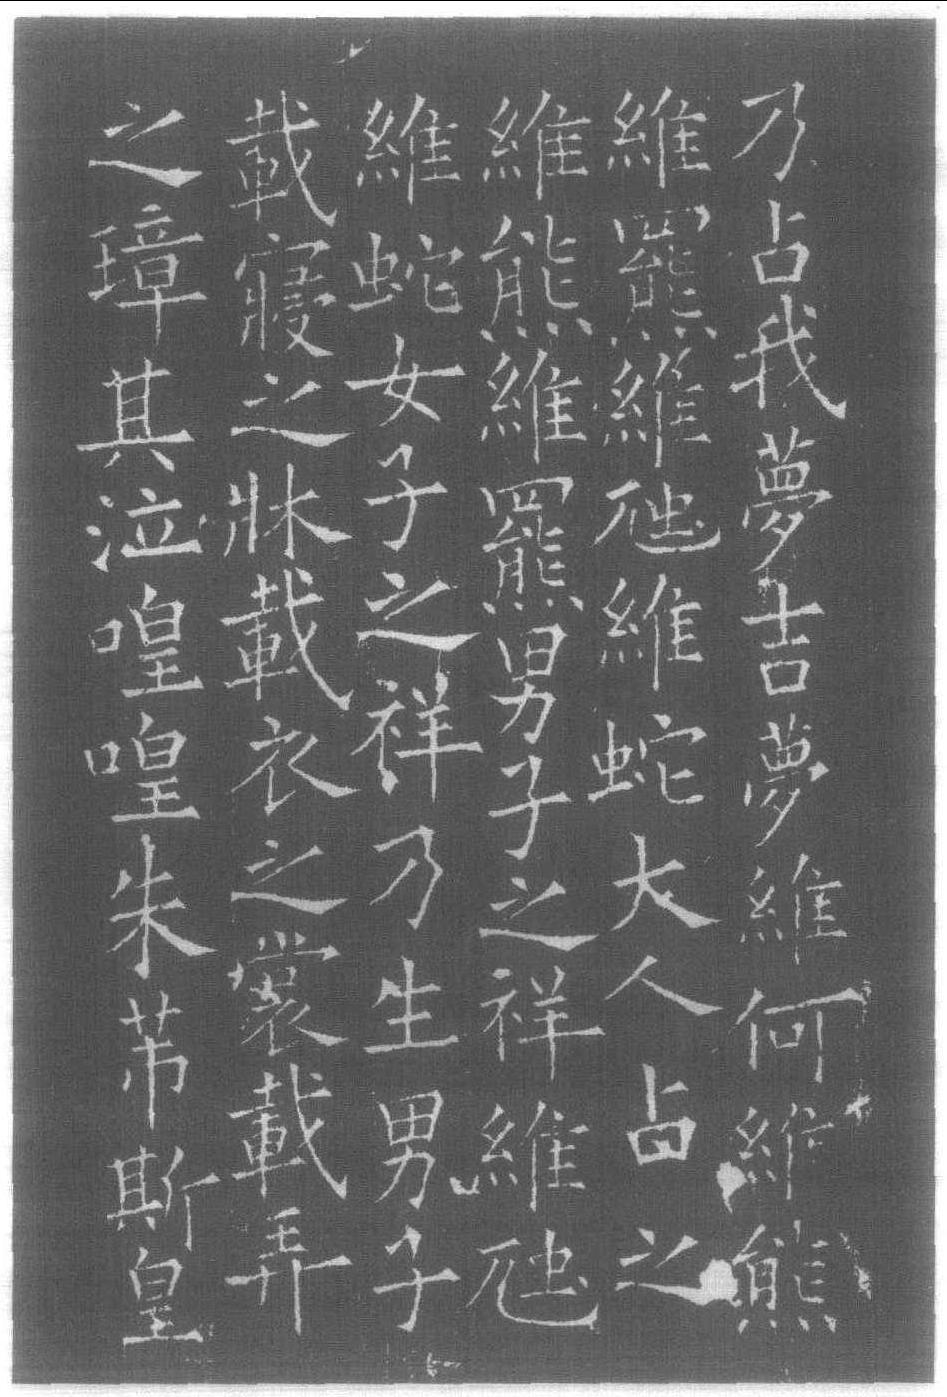 乃占我夢吉夢維何維熊
維羆維虺維蛇大人占之
維熊維羆男子之祥維虺
維蛇女子之祥乃生男子
載寢之牀載衣之裳載弄
之璋其泣喤喤朱芾斯皇